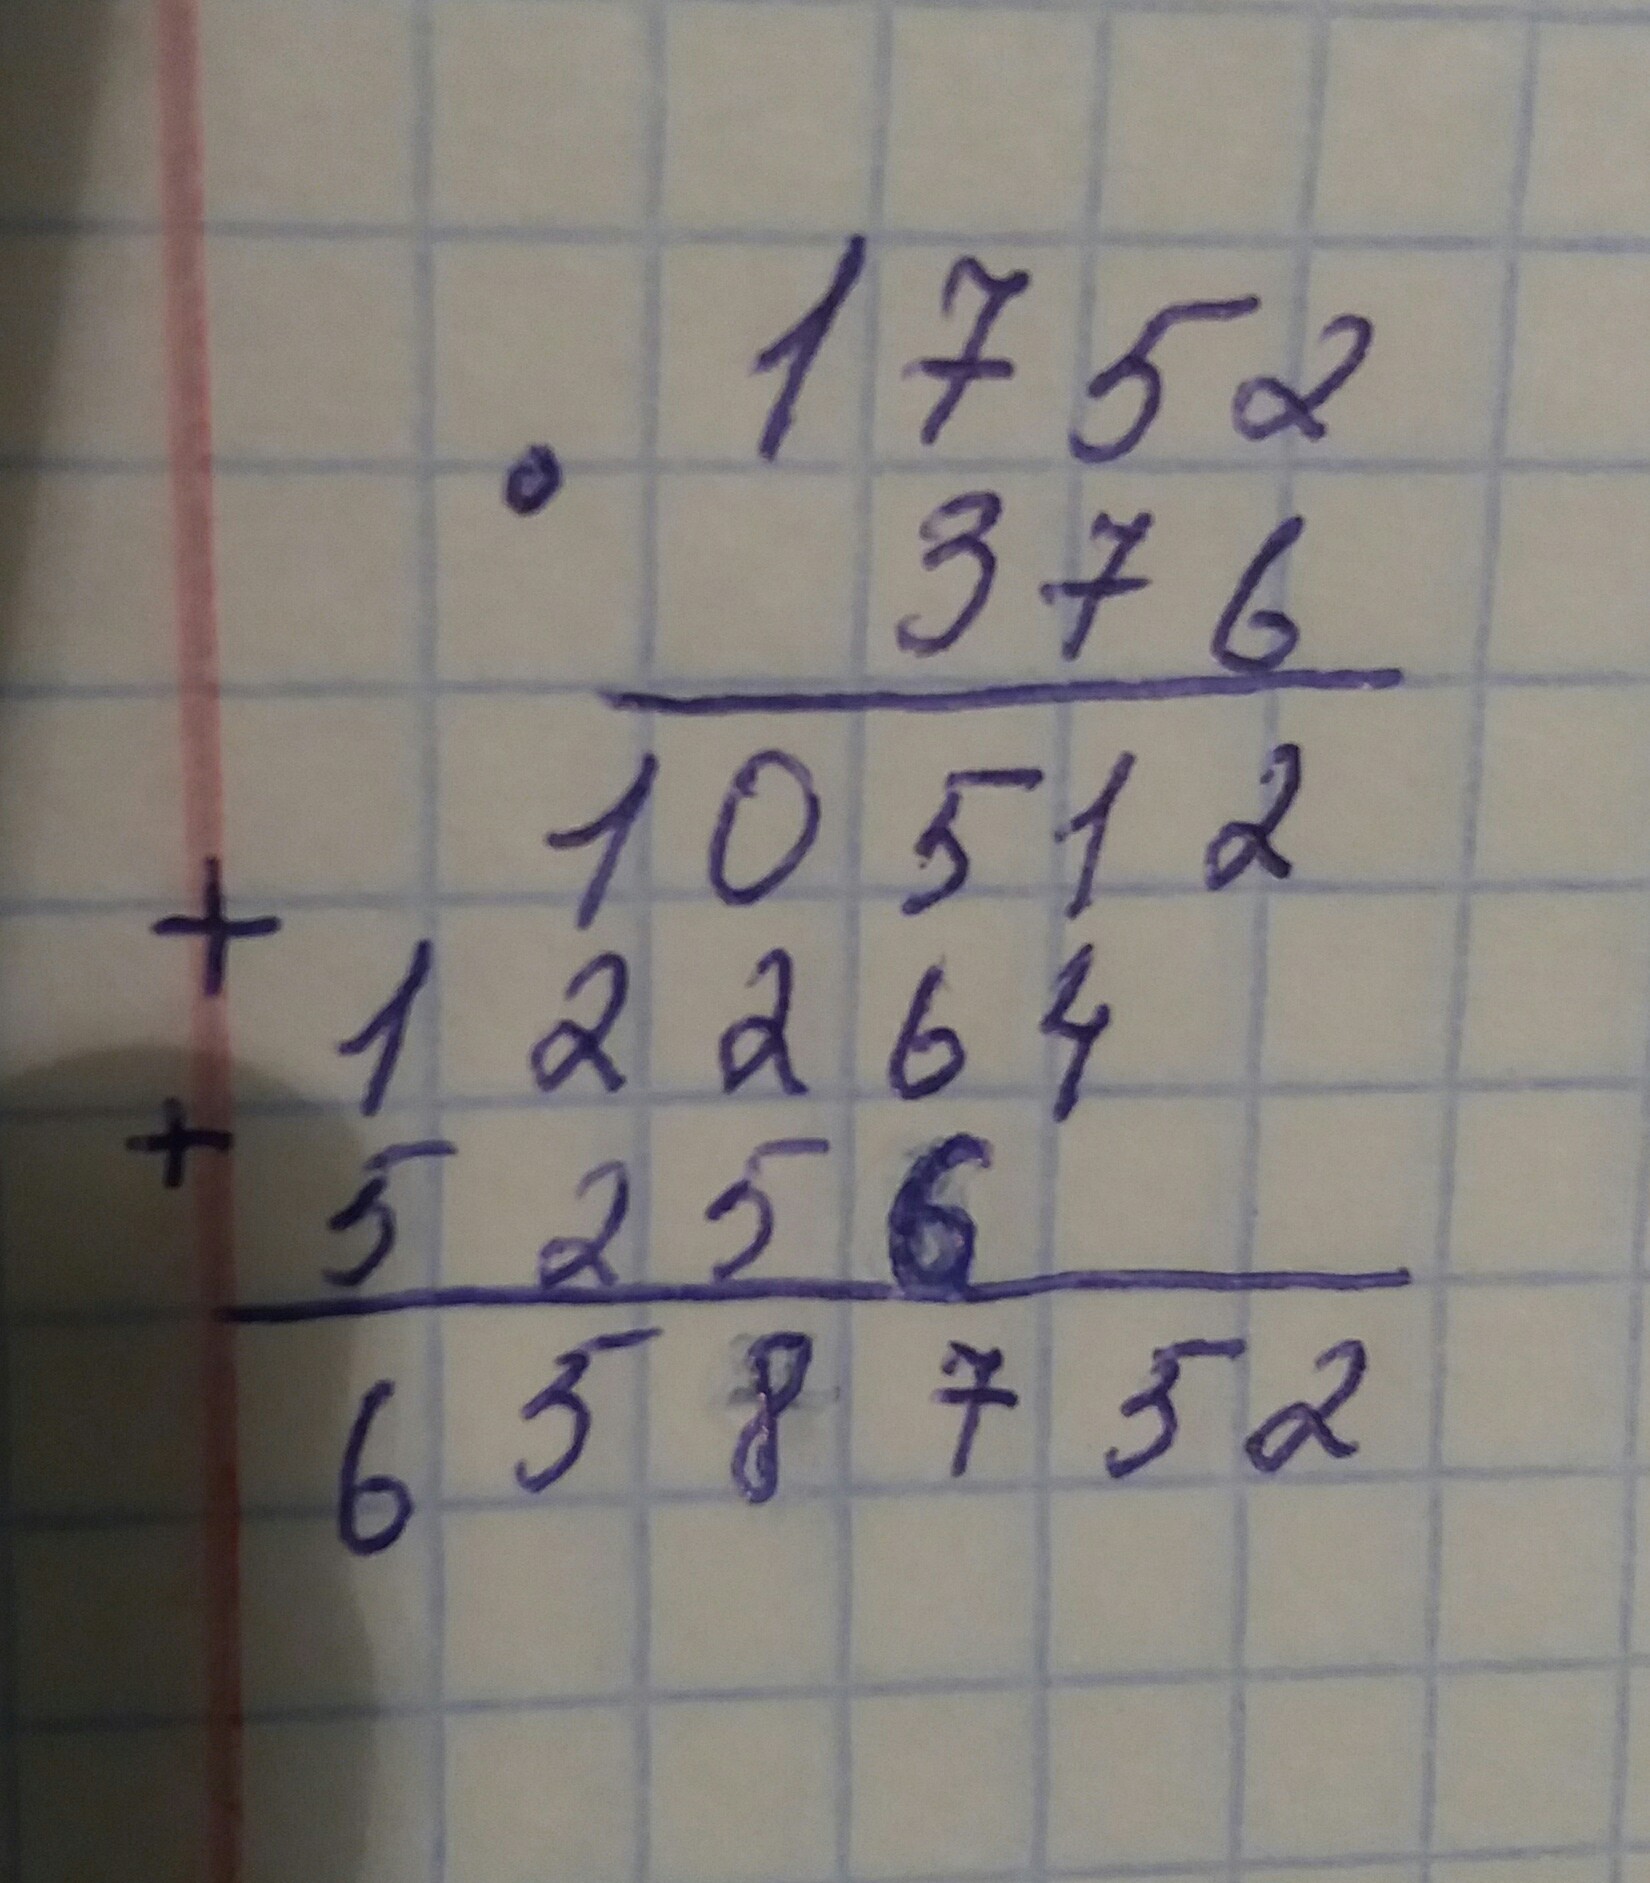 1752
· 376
10512
+ 12264
+ 5256
658752